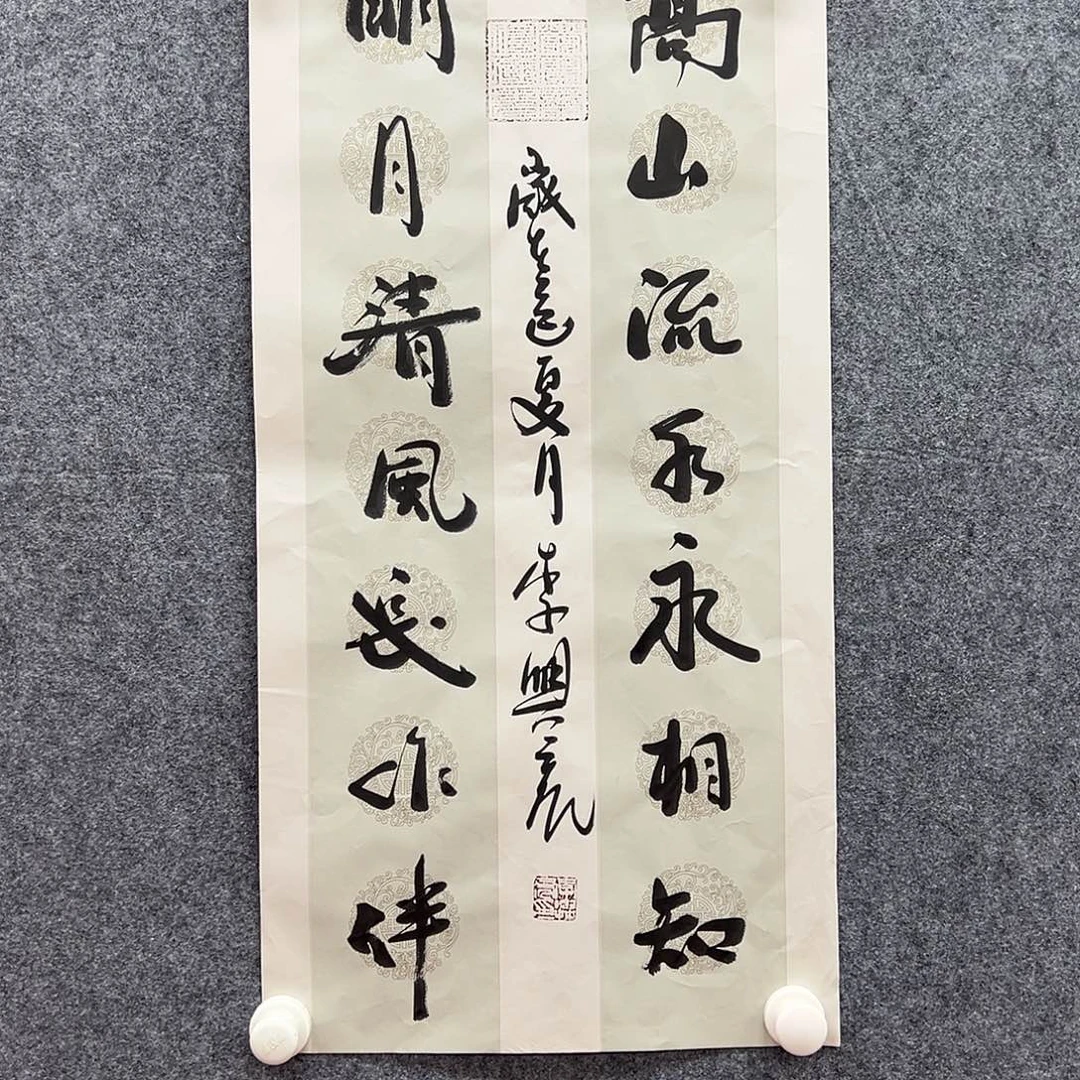 高山流水永相知
明月清風長作伴
歲在乙巳夏月李興